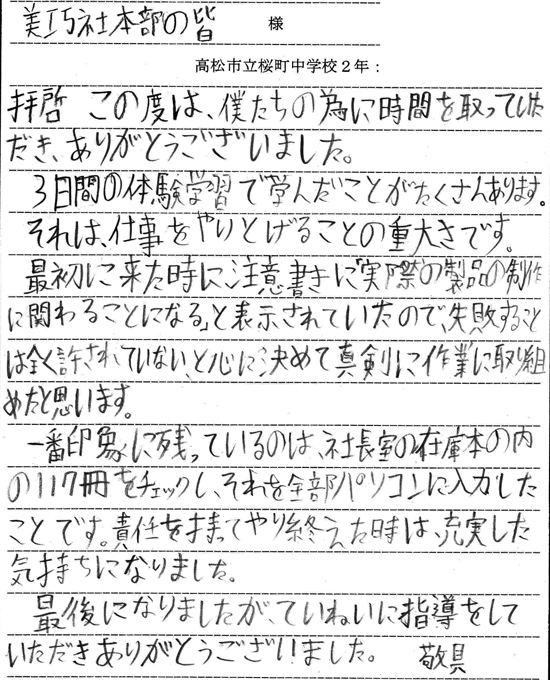 美巧社本部の皆 様
高松市立桜町中学校2年:
拝啓 この度は、僕たちの為に時間を取っていた
だき、ありがとうございました。
3日間の体験学習で学んだことがたくさんあります。
それは、仕事をやりとげることの重大さです。
最初に来た時に注意書きに「実際の製品の制作
に関わることになる」と表示されていたので、失敗すること
は全く許されていない、と心に決めて真剣に作業に取り組
めたと思います。
一番印象に残っているのは、社長室の在庫本の内
の117冊をチェックし、それを全部パソコンに入力した
ことです。責任を持ってやり終えた時は、充実した
気持ちになりました。
最後になりましたが、ていねいに指導をして
いただきありがとうございました。 敬具